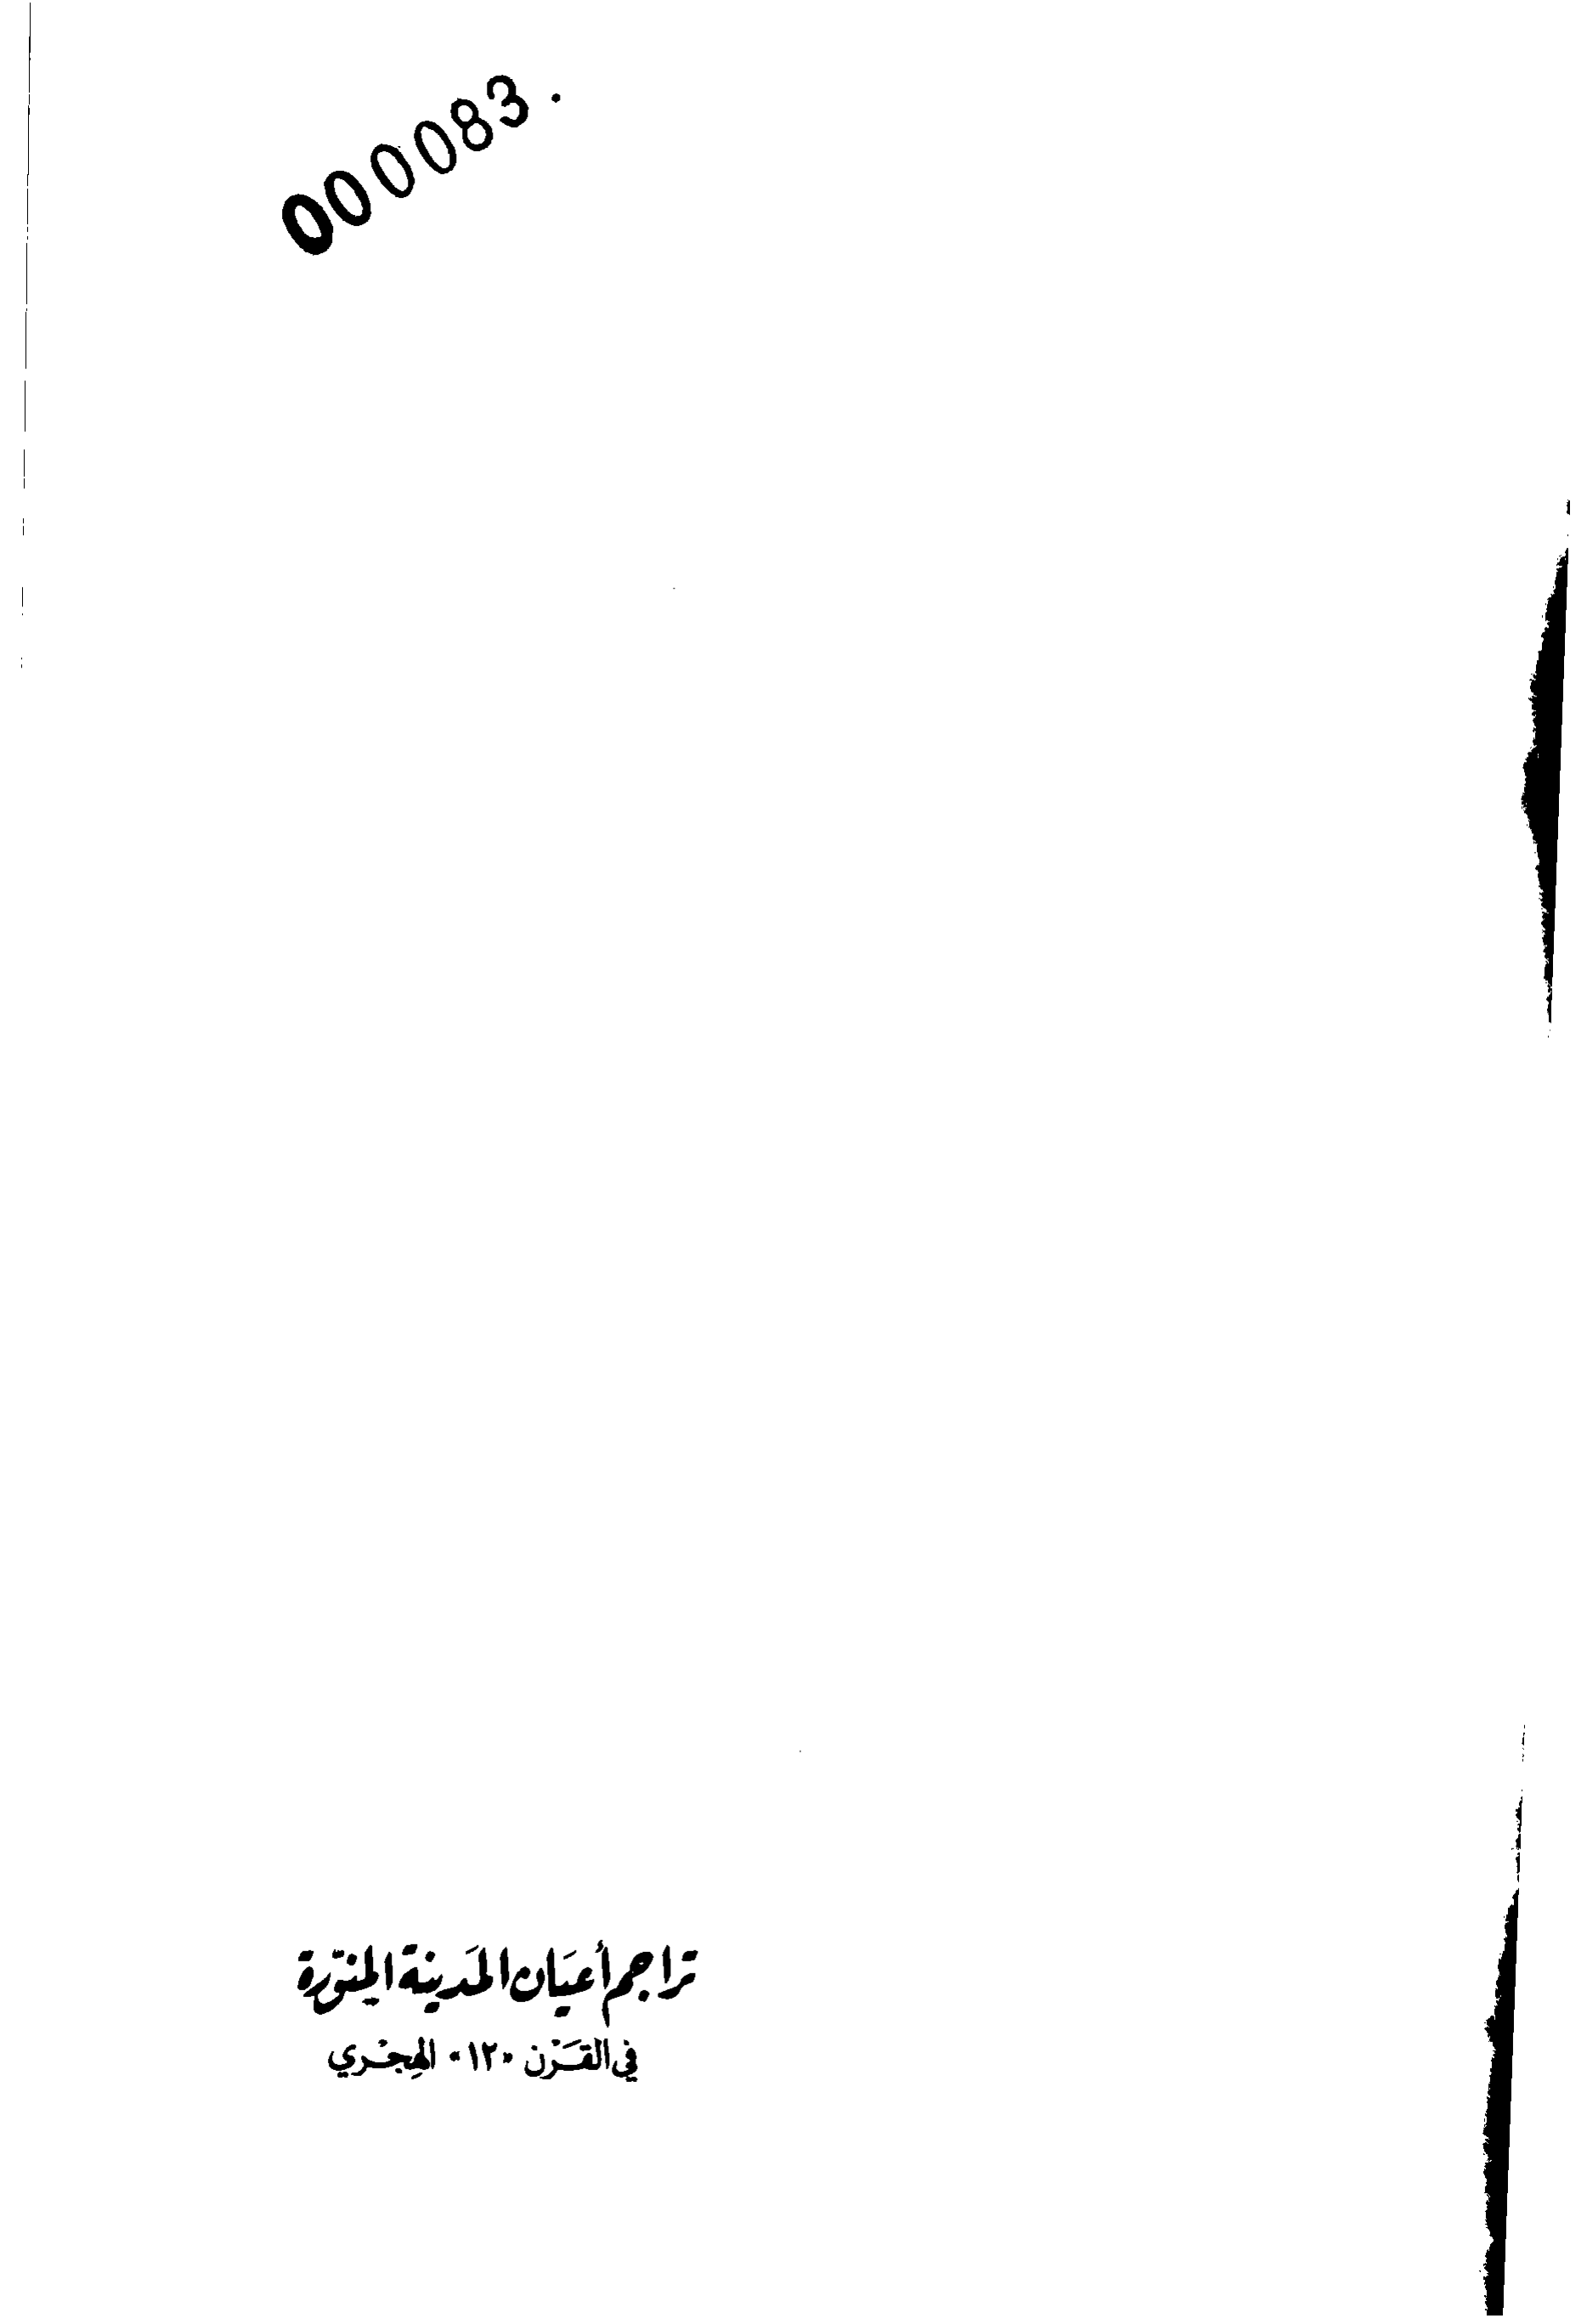 000083.
تراجم أعيَان المَدينة المنوّرة
في القَرْن «١٢» الهِجْري